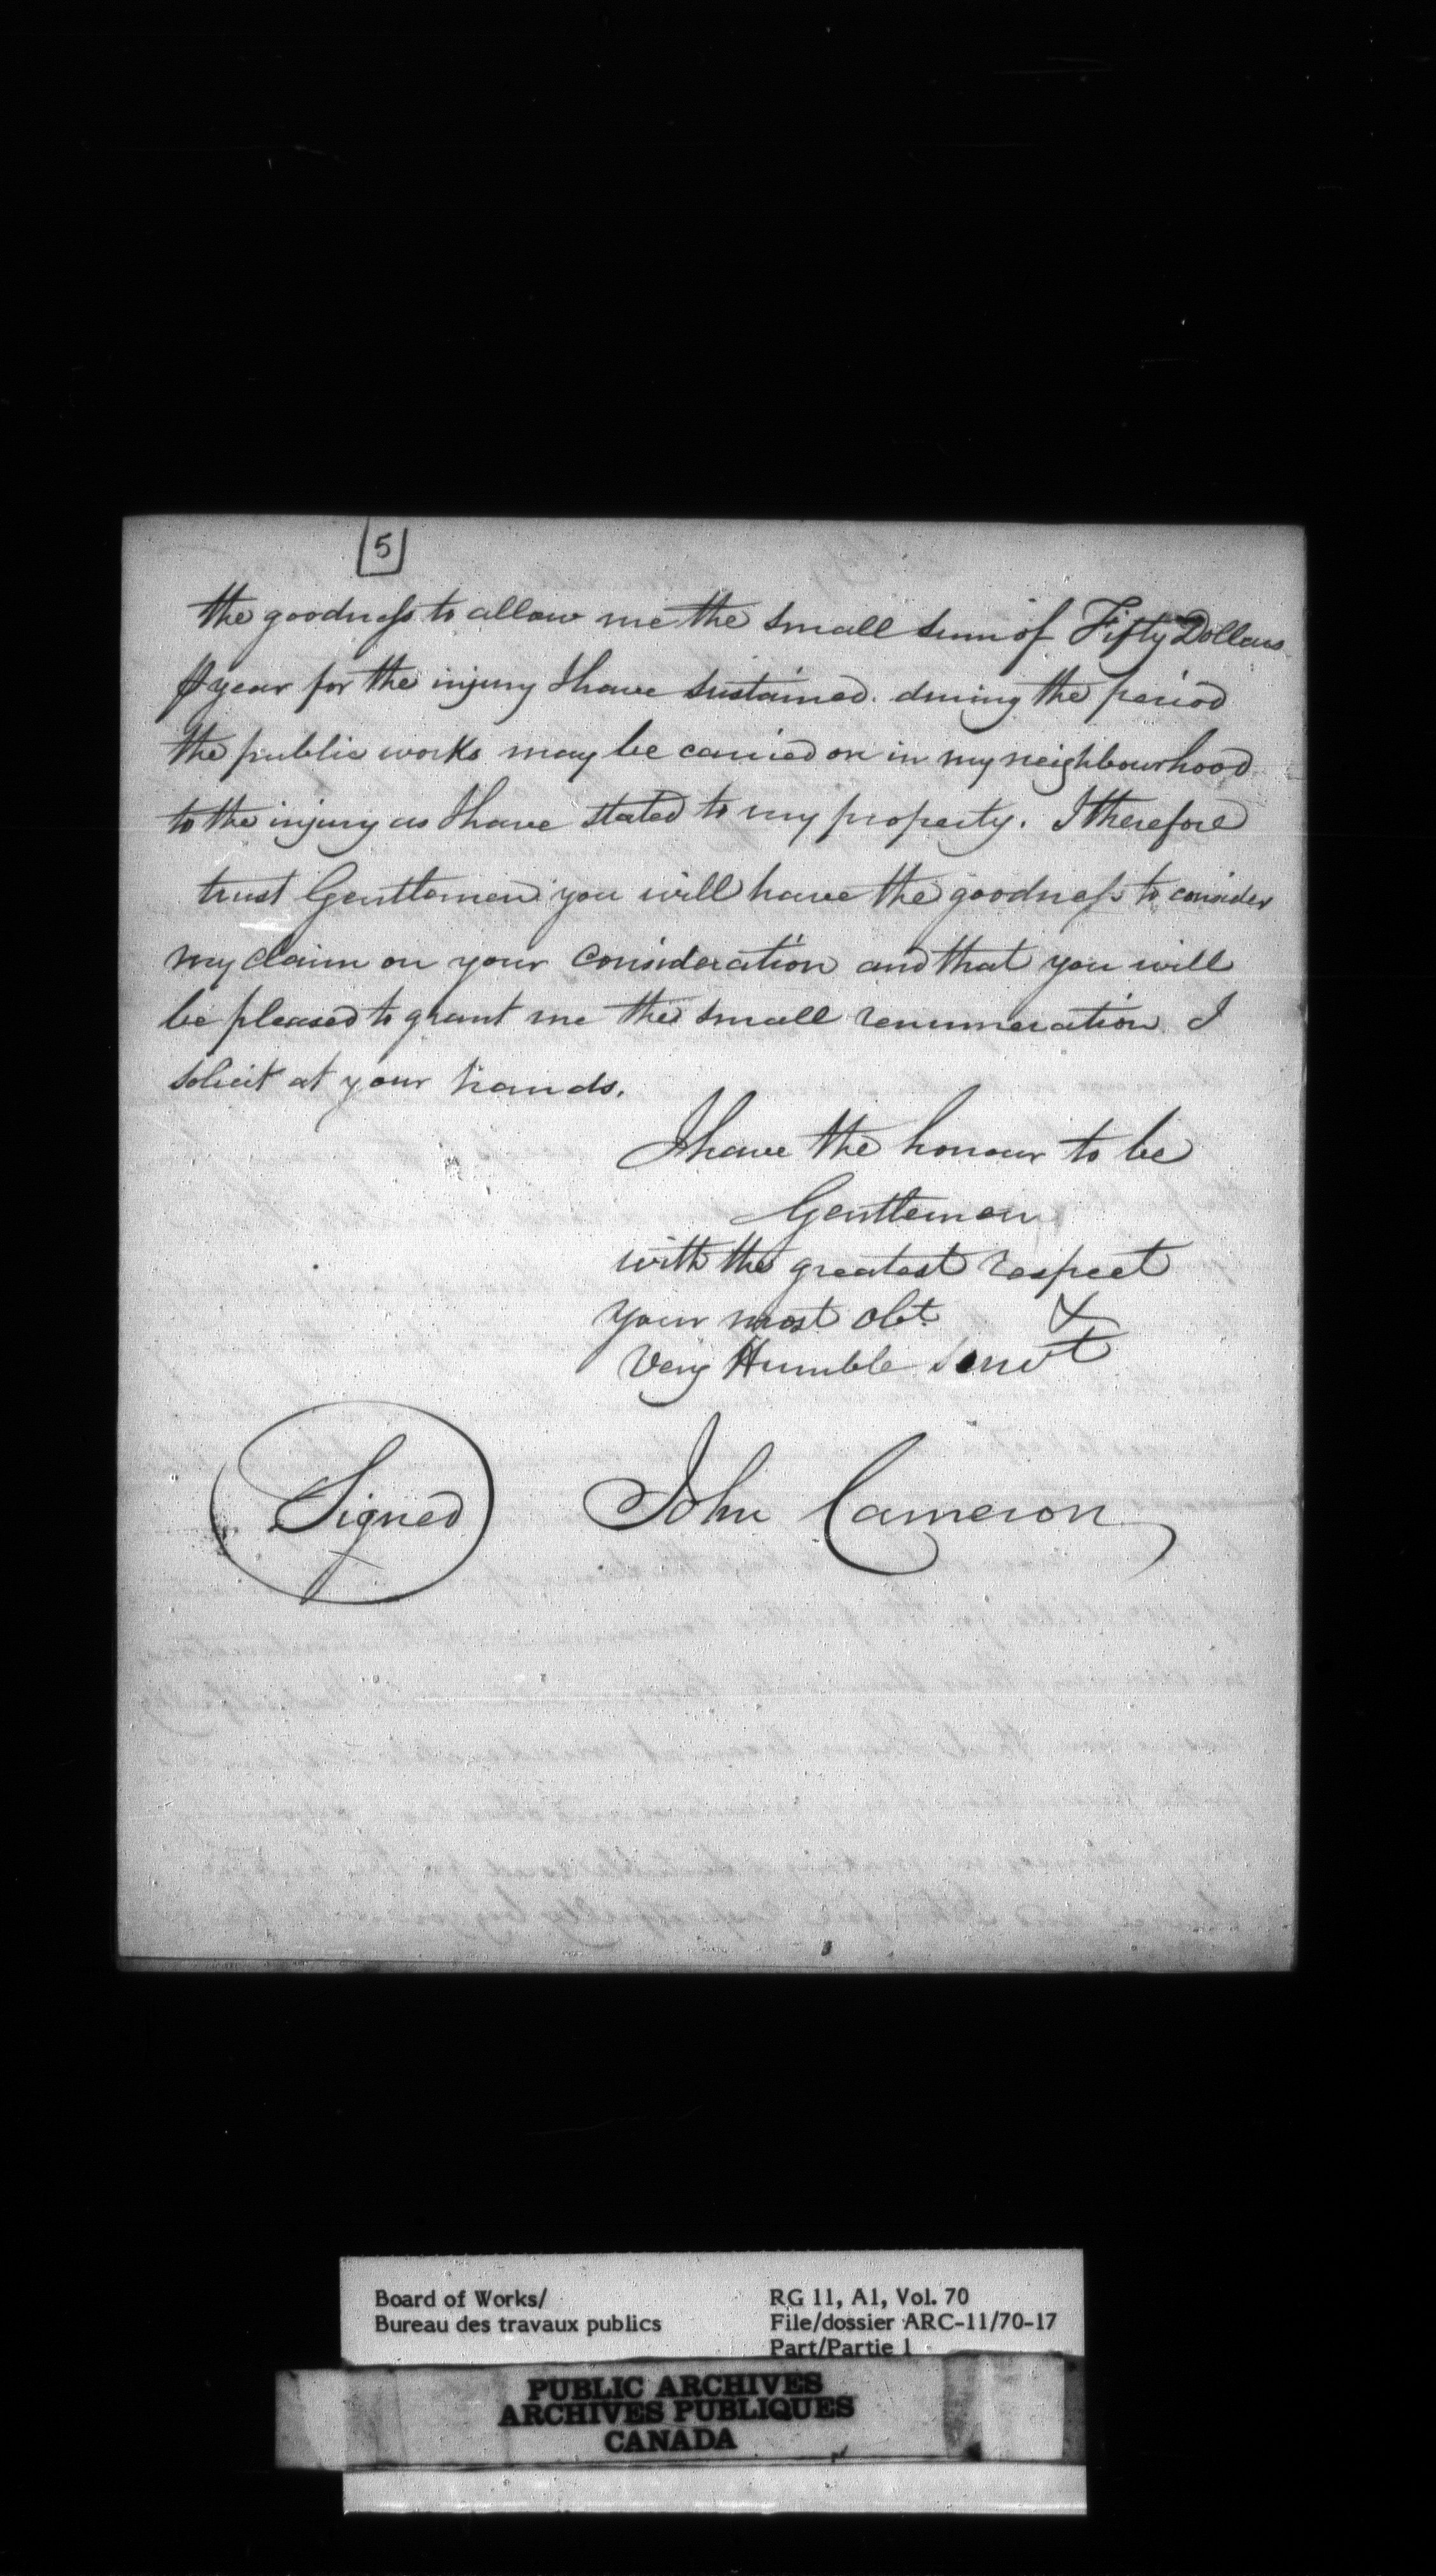 5
the goodness to allow me the small sum of Fifty Dollars
⅌ year for the injury I have sustained. during the period
the public works may be carried on in my neighbourhood
to the injury as I have stated to my property. I therefore
trust Gentlemen you will have the goodness to consider
my claim on your consideration and that you will
be pleased to grant me the small remuneration I
solicit at your hands.
I have the honour to be
Gentlemen
with the greatest respect
your most obt. &
Very Humble Servt
Signed John Cameron
Board of Works/
Bureau des travaux publics
RG 11, A1, Vol. 70
File/dossier ARC-11/70-17
Part/Partie 1
PUBLIC ARCHIVES
ARCHIVES PUBLIQUES
CANADA